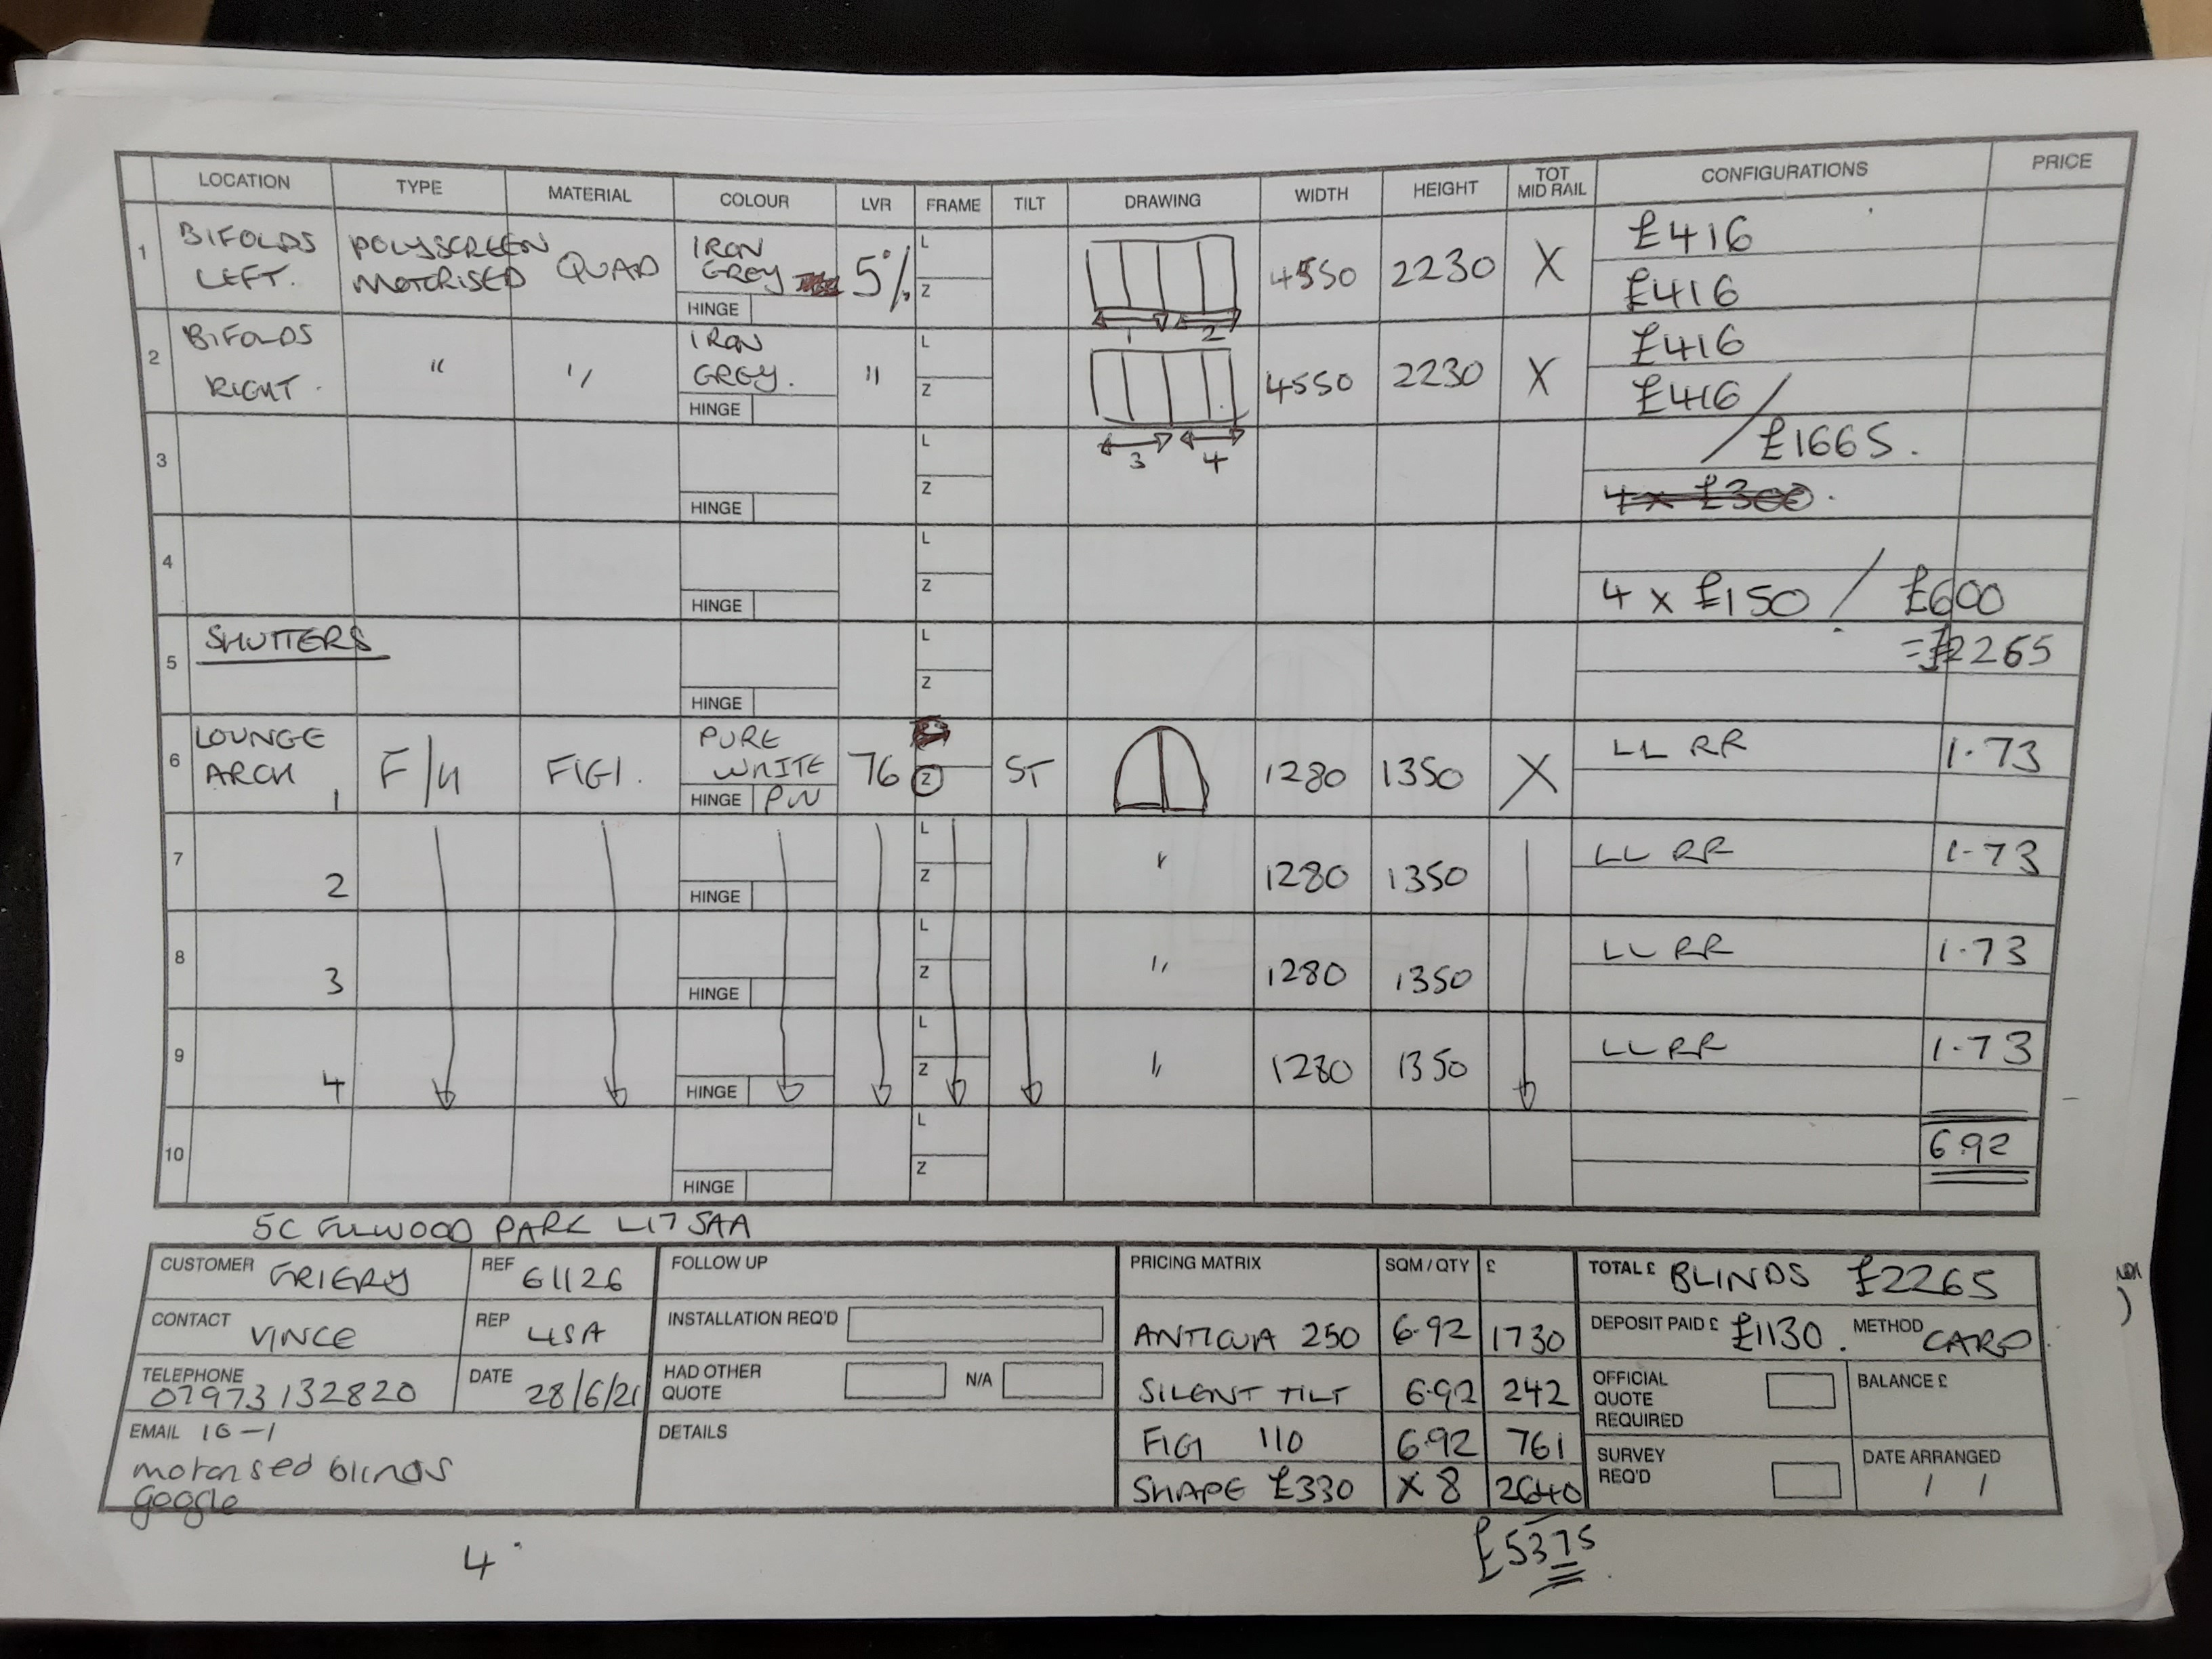 LOCATION TYPE MATERIAL COLOUR LVR FRAME TILT DRAWING WIDTH HEIGHT TOT MID RAIL CONFIGURATIONS PRICE
1 BIFOLDS LEFT. POLYSCREEN MOTORISED QUAD IRON GREY 5% L Z 1 2 4550 2230 X £416
HINGE £416
2 BIFOLDS RIGHT. " " IRON GREY. " L Z 3 4 4550 2230 X £416
HINGE £416 /
3 L Z / £1665.
HINGE 4 x £300.
4 L Z
HINGE 4 x £150 / £600
5 SHUTTERS L Z = £2265
HINGE
6 LOUNGE ARCH 1 F/H FIGI. PURE WHITE 76 Z ST 1280 1350 X LL RR 1.73
HINGE PW
7 2 L Z " 1280 1350 LL RR 1.73
HINGE
8 3 L Z " 1280 1350 LL RR 1.73
HINGE
9 4 L Z " 1280 1350 LL RR 1.73
HINGE
10 L Z 6.92
HINGE
5C FULWOOD PARK L17 5AA
CUSTOMER GRIERY REF 61126 FOLLOW UP PRICING MATRIX SQM / QTY £ TOTAL £ BLINDS £2265
CONTACT VINCE REP LISA INSTALLATION REQ'D ANTIGUA 250 6.92 1730 DEPOSIT PAID £ £1130. METHOD CARD
TELEPHONE 07973 132820 DATE 28/6/21 HAD OTHER QUOTE N/A SILENT TILT 6.92 242 OFFICIAL QUOTE REQUIRED BALANCE £
EMAIL 16-1 DETAILS FIGI 110 6.92 761 SURVEY REQ'D DATE ARRANGED
motorised blinds SHAPE £330 x 8 2640 / /
google
4 £5375